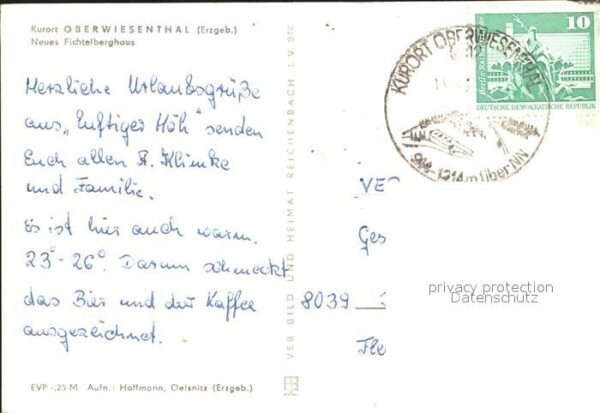 Kurort OBERWIESENTHAL (Erzgeb.)
Neues Fichtelberghaus
Herzliche Urlaubsgrüße
aus „luftiger Höh" senden
Euch allen A. Klimke
und Familie.
Es ist hier auch warm.
23°-26°. Darum schmeckt
das Bier und der Kaffee
ausgezeichnet.
EVP -,25 M Aufn.: Hoffmann, Oelsnitz (Erzgeb.)
VEB BILD UND HEIMAT REICHENBACH I. V. BfK
KURORT OBERWIESENTHAL
914-1214 m über NN
10
DEUTSCHE DEMOKRATISCHE REPUBLIK
VE
Ges
8039
Fle
privacy protection
Datenschutz